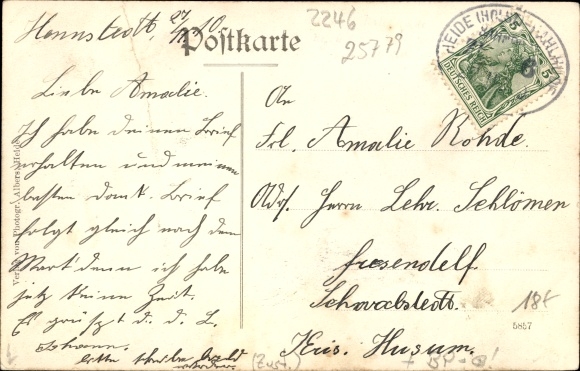 Hennstedt, 27/12 10.
Postkarte
2246
25779
HEIDE (HOL
5 5
DEUTSCHES REICH
Liebe Amalie.
Ich habe deinen Brief
erhalten und meinen
besten Dank. Brief
folgt gleich nach dem
Markt denn ich habe
jetz keine Zeit.
Es grüßt d. d. L.
Johann.
bitte schreibe bald
wieder.
An
Frl. Amalie Rohde.
Adr. Herrn Lehr. Schlömer
Fresendelf.
Schwabstedt.
Kris. Husum.
(Zust.)
18t
5857
Verlag von Photogr. Albers, Heide